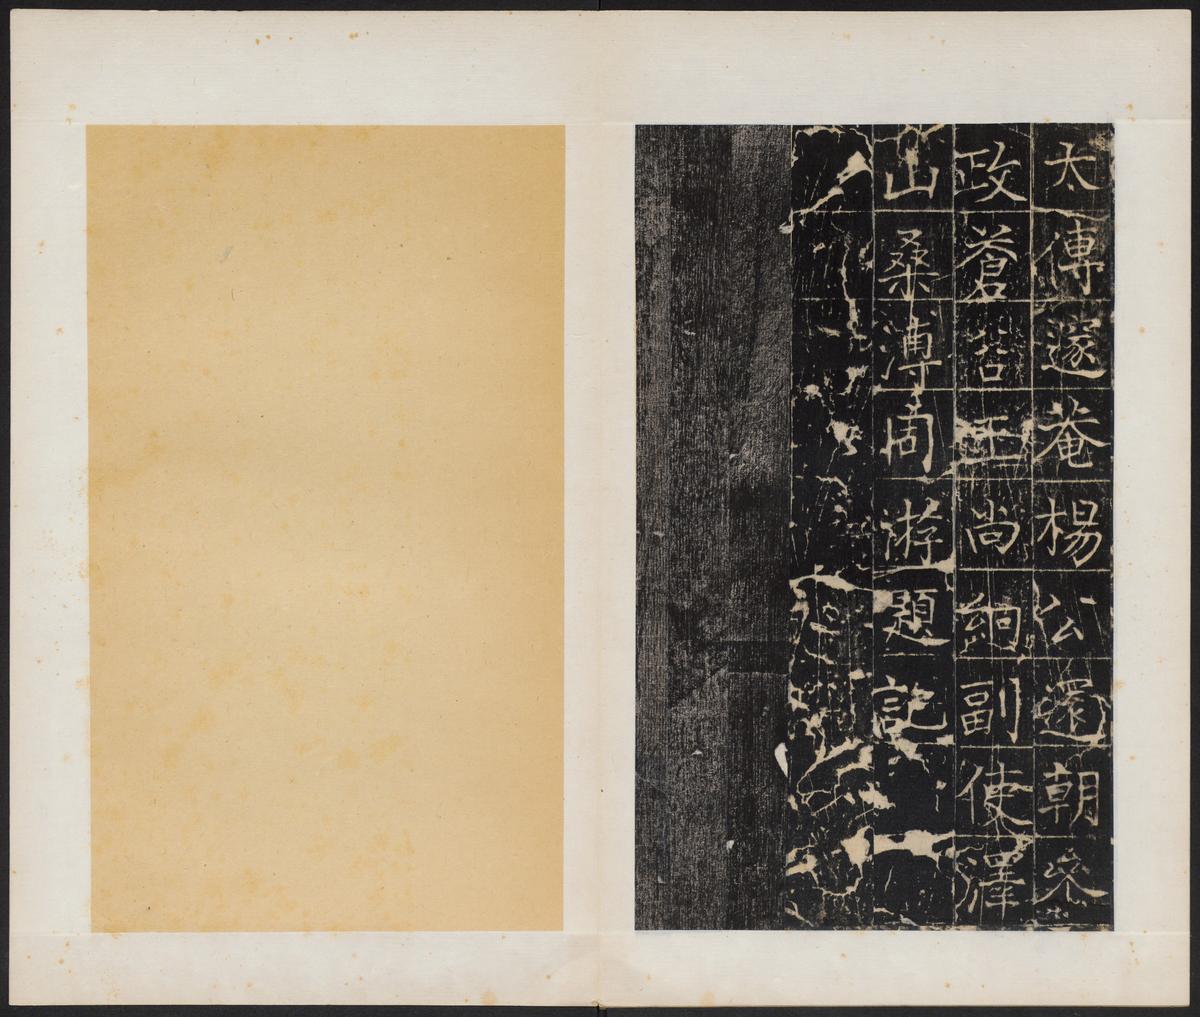 太傅邃菴楊公還朝叅
政蒼谷王尚絅副使澤
山桑溥同游題記